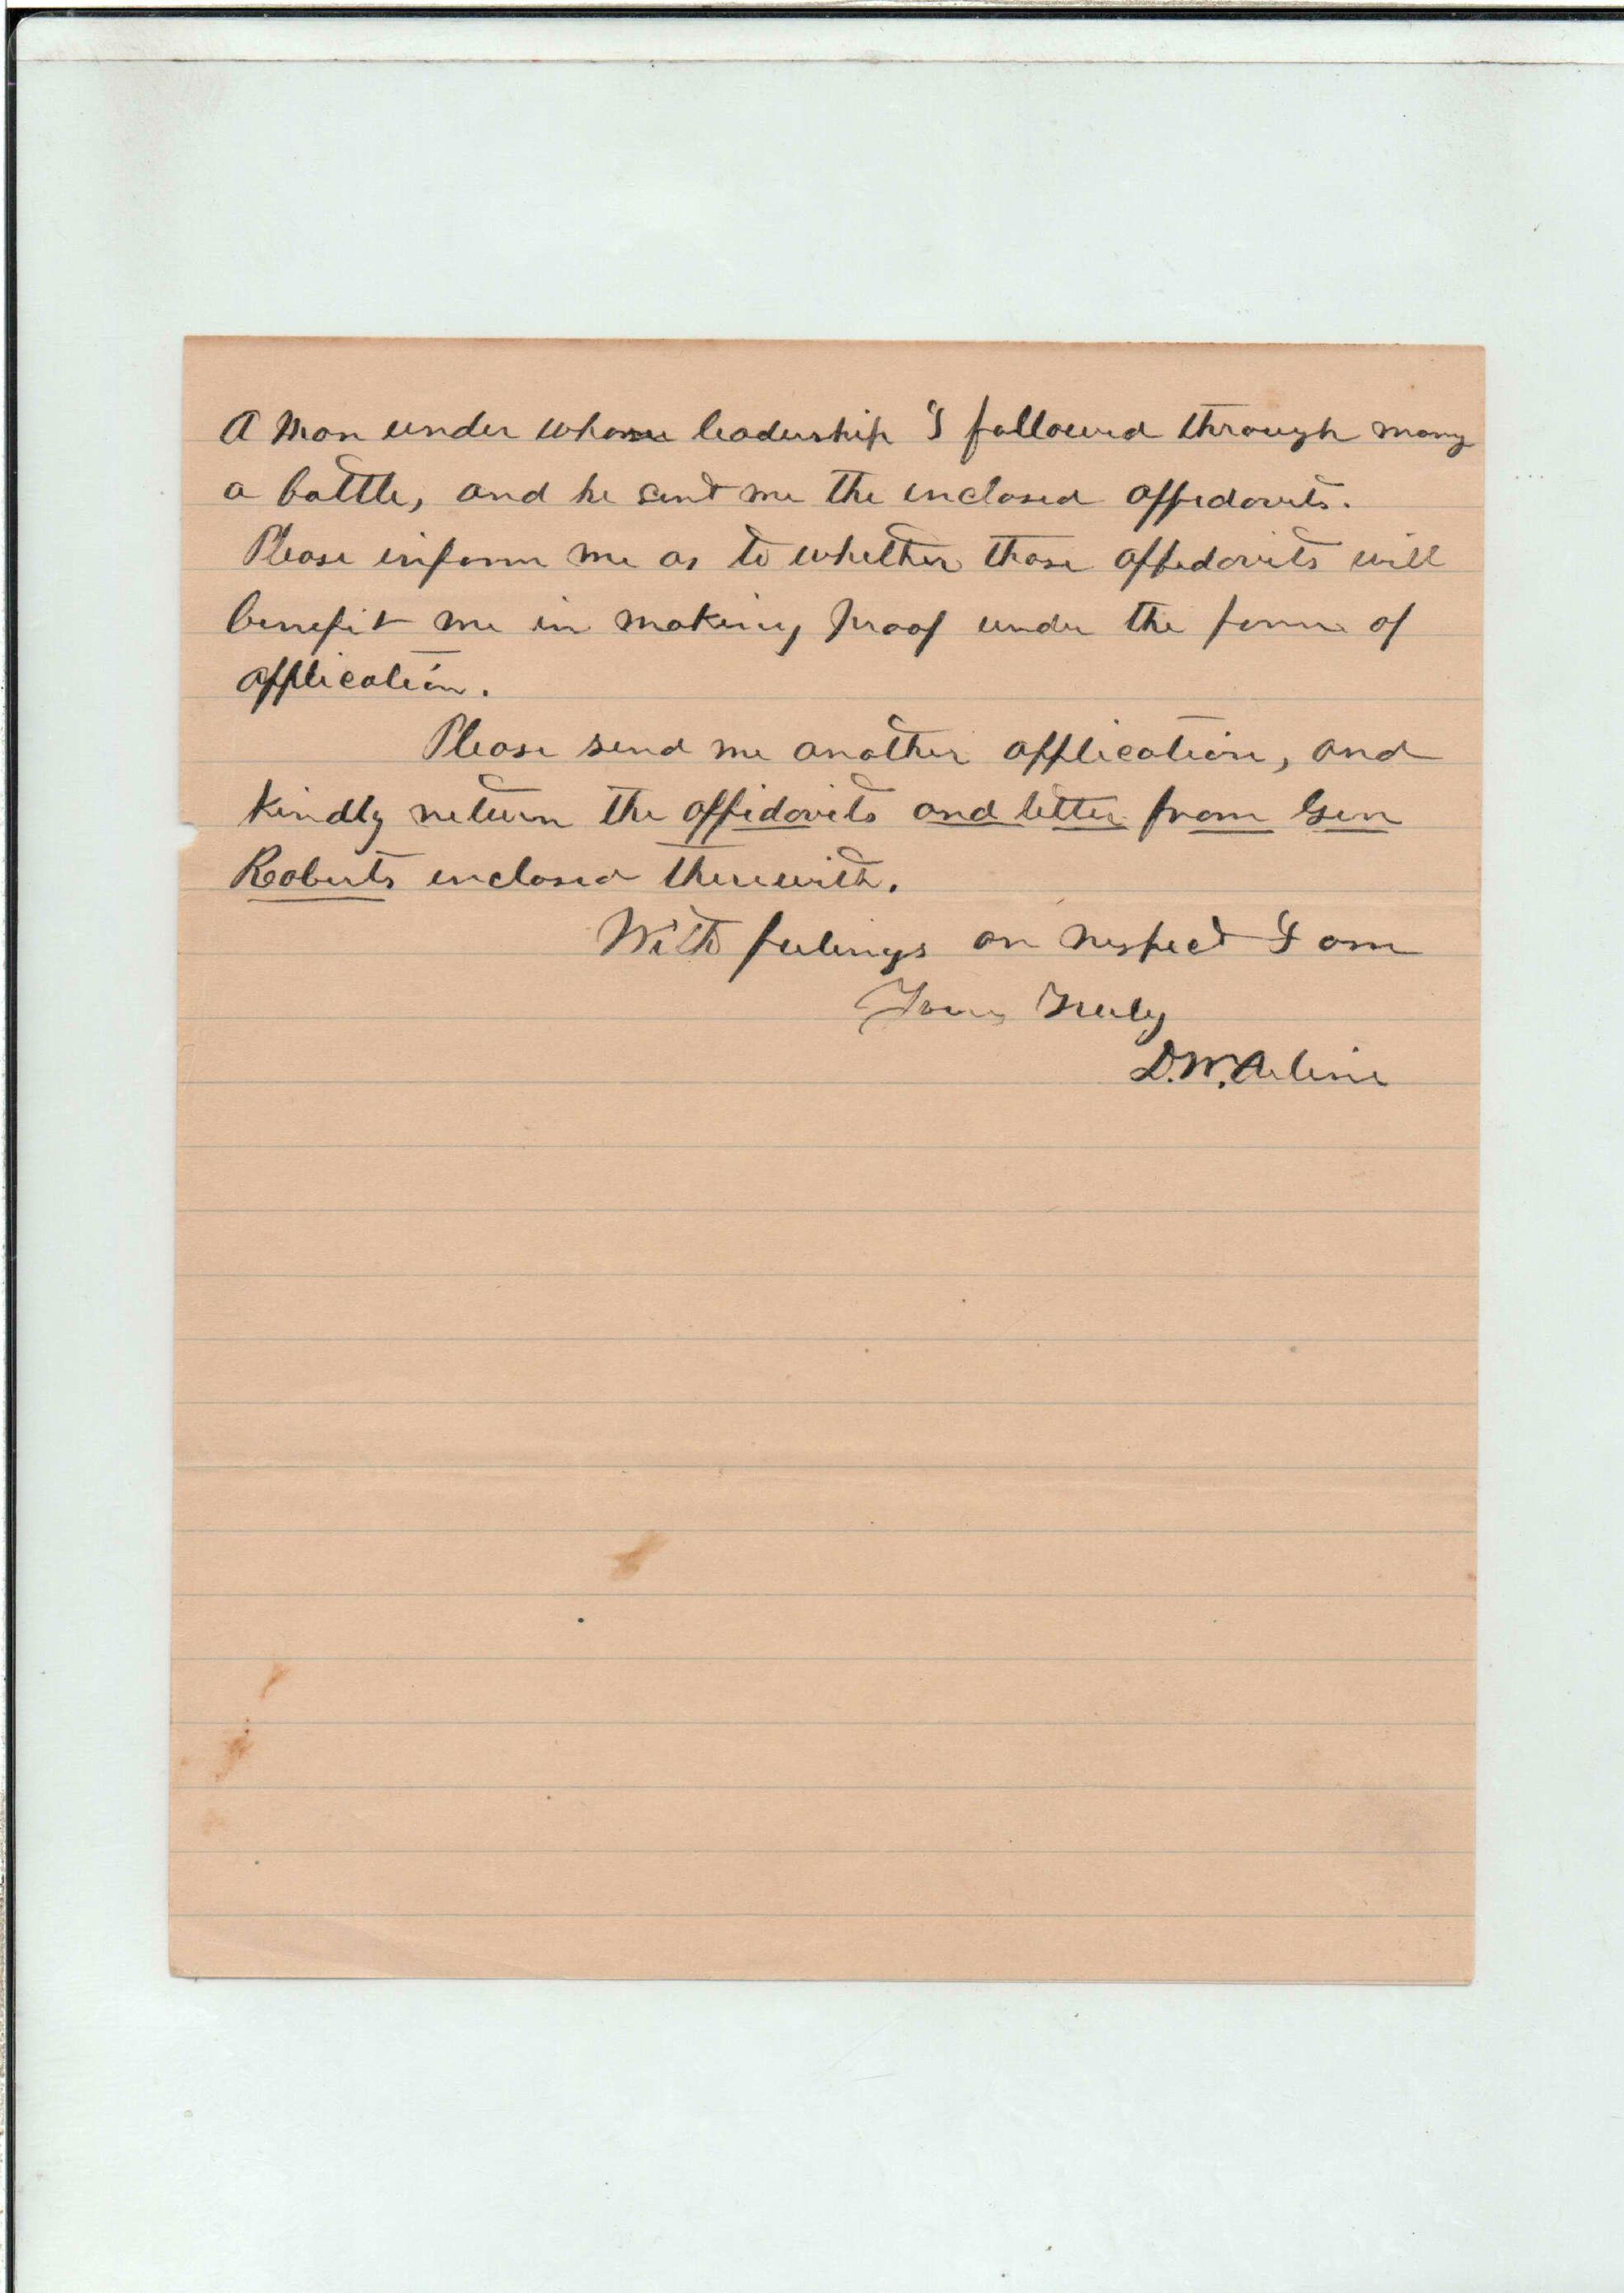 A man under whose leadership I followed through many
a battle, and he sent me the enclosed affedavits.
Please inform me as to whether those affedavits will
benefit me in making proof under the form of
application.
Please send me another application, and
kindly return the affidavits and letter from Gen
Roberts enclosed therewith.
With feelings on respect I am
Yours Truly
D.W. Arline